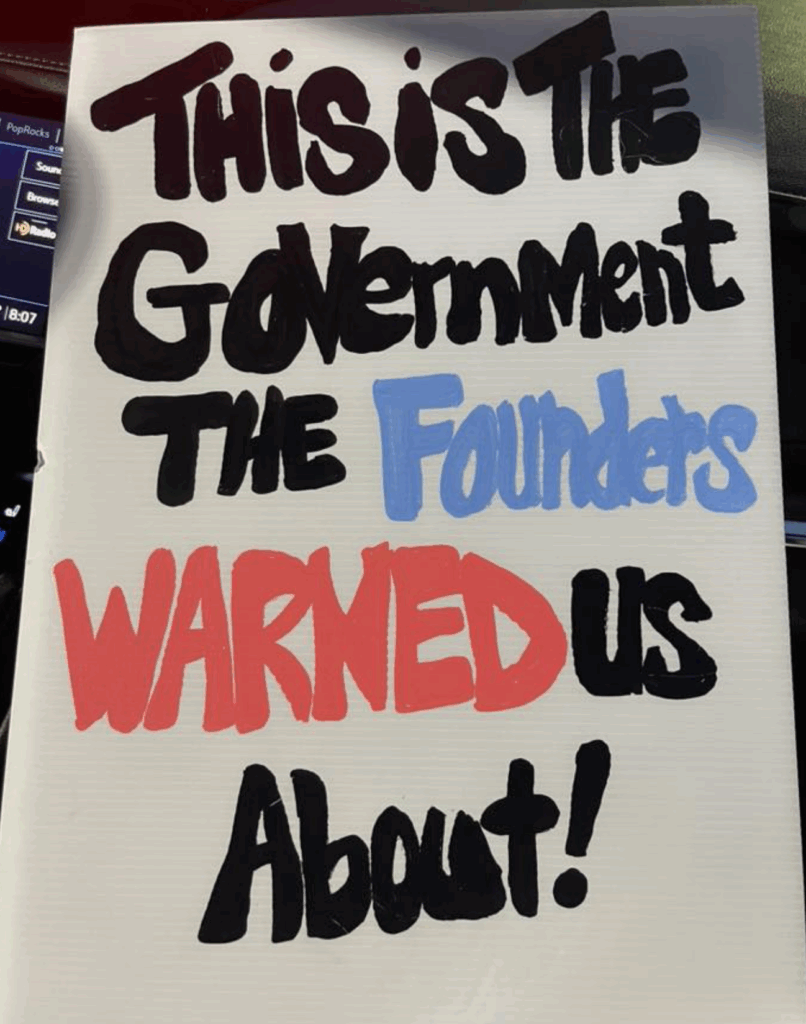 THiS iS THE
GOVernMent
THE Founders
WARNED US
About!
PopRocks
Radio
8:07